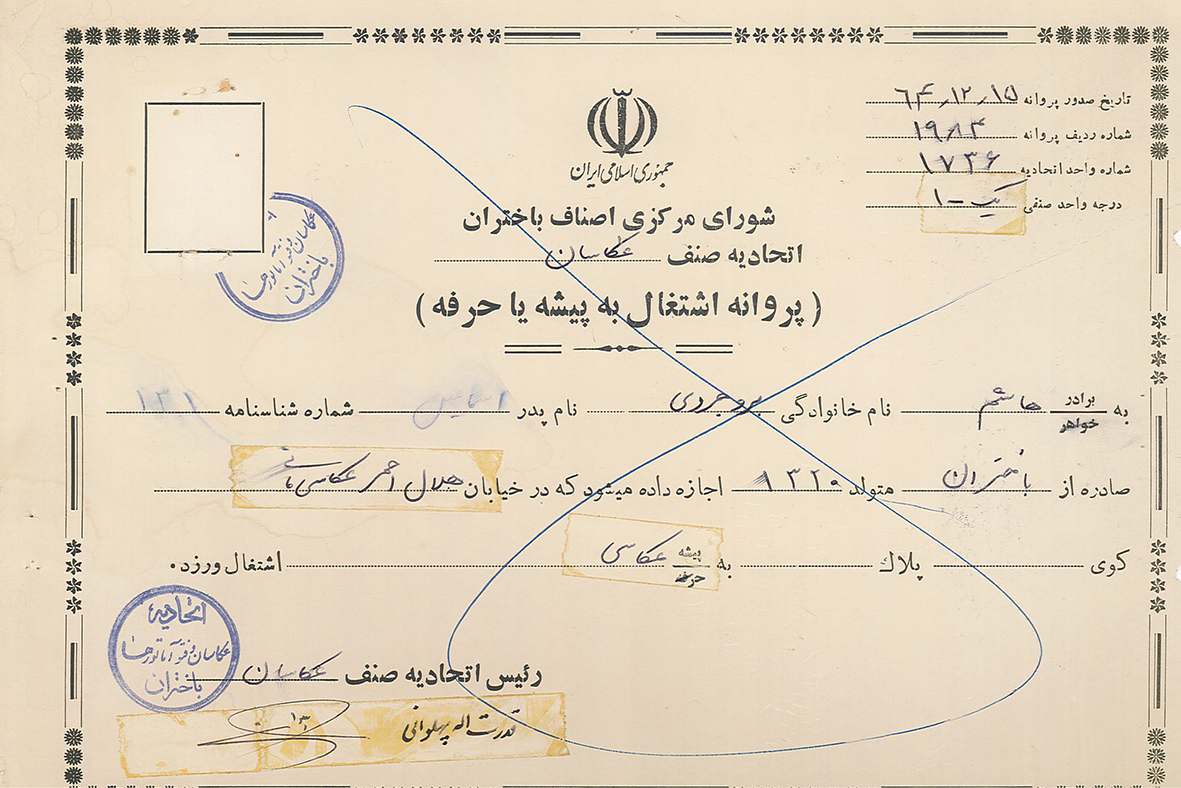 جمهوری اسلامی ایران
تاریخ صدور پروانه ۶۴٫۱۲٫۱۵
شماره ردیف پروانه ۱۹۸۴
شماره واحد اتحادیه ۱۷۳۶
درجه واحد صنفی یک - ۱
شورای مرکزی اصناف باختران
اتحادیه صنف عکاسان
(پروانه اشتغال به پیشه یا حرفه)
عکاسان و فتوآماتورها
باختران
به برادر خواهر هاشم نام خانوادگی بروجردی نام پدر شماره شناسنامه
صادره از باختران متولد ۱۳۲۰ اجازه داده میشود که در خیابان هلال احمر عکاسی
کوی پلاك به پیشه حرفه عکاسی اشتغال ورزد.
رئیس اتحادیه صنف عکاسان
قدرت اله پهلوانی
اتحادیه
عکاسان و فتوآماتورها
باختران